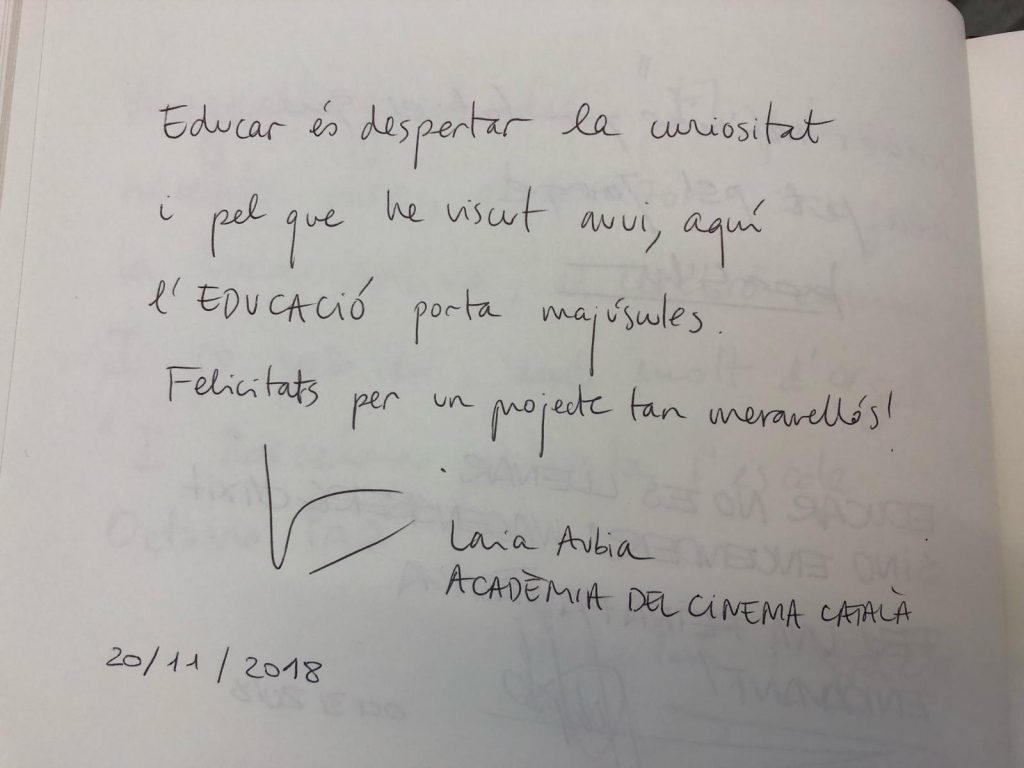 Educar és despertar la curiositat
i pel que he viscut avui, aquí
l'EDUCACIÓ porta majúscules.
Felicitats per un projecte tan meravellós!
Laia Aubia
ACADÈMIA DEL CINEMA CATALÀ
20/11/2018